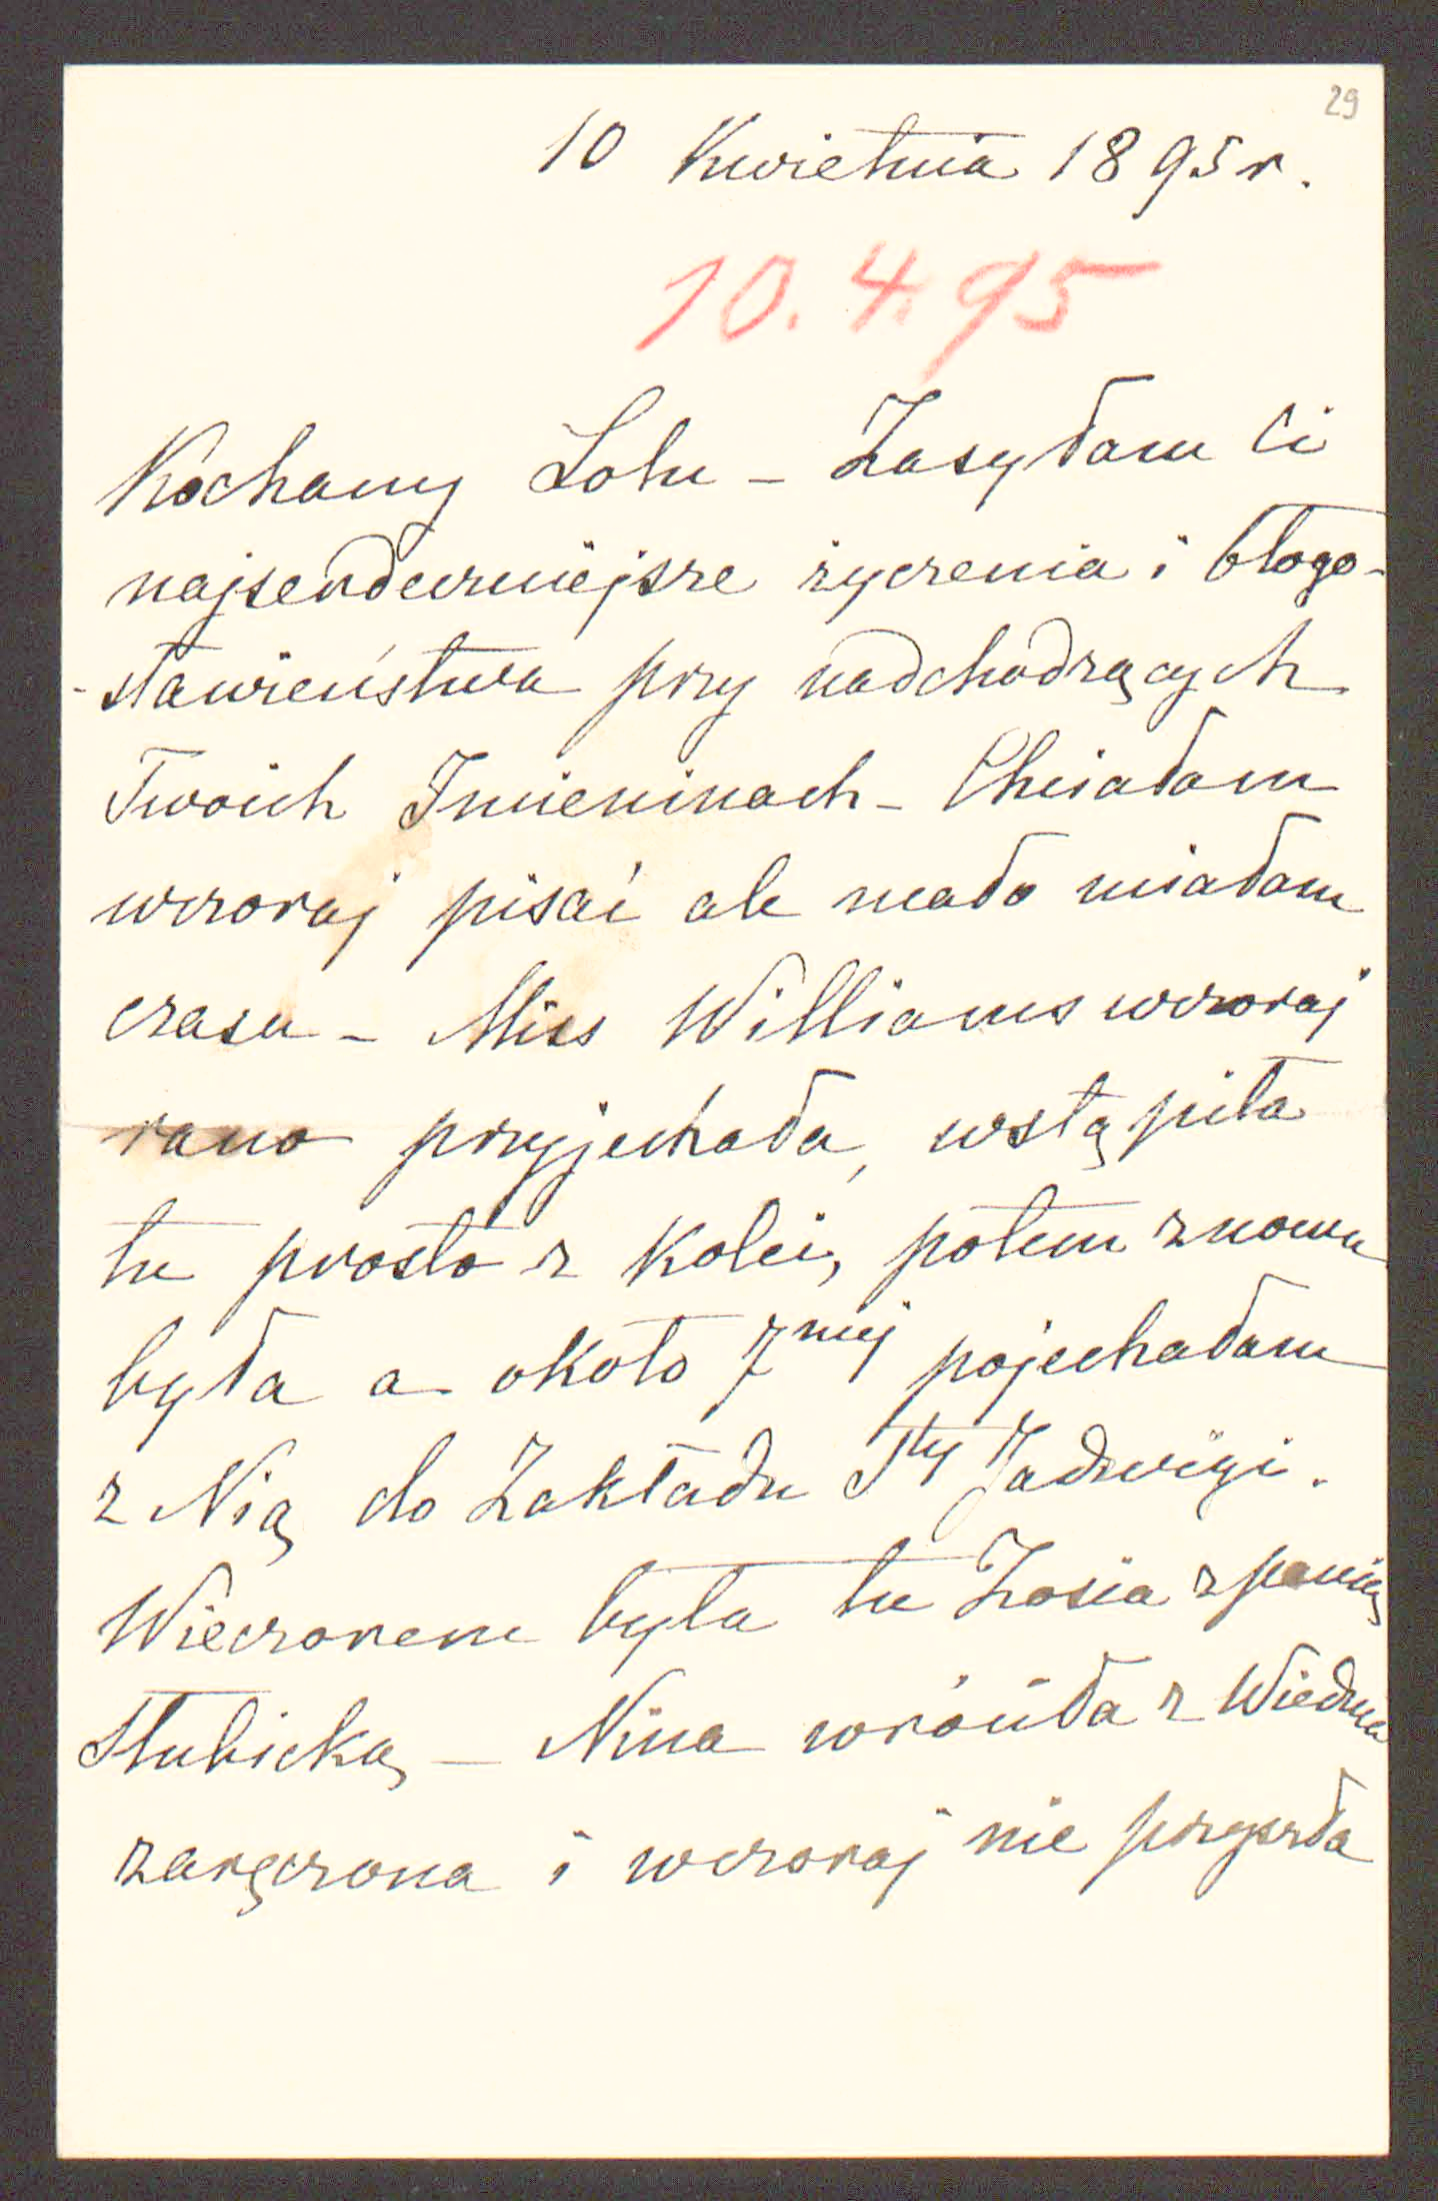 29
10 Kwietnia 1895 r.
10.4.95
Kochany Lolu - Zasyłam Ci
najserdeczniejsze życzenia i błogo-
-sławieństwa przy nadchodzących
Twoich Imieninach - Chciałam
wczoraj pisać ale mało miałam
czasu - Miss Williams wczoraj
rano przyjechała, wstąpiła
tu prosto z kolei, potem znowu
była a około 7mej pojechałam
z Nią do Zakładu Sty Jadwigi.
Wieczorem była tu Zosia z panią
Słubicką - Nina wróciła z Wiednia
zaręczona i wczoraj nie przyszła